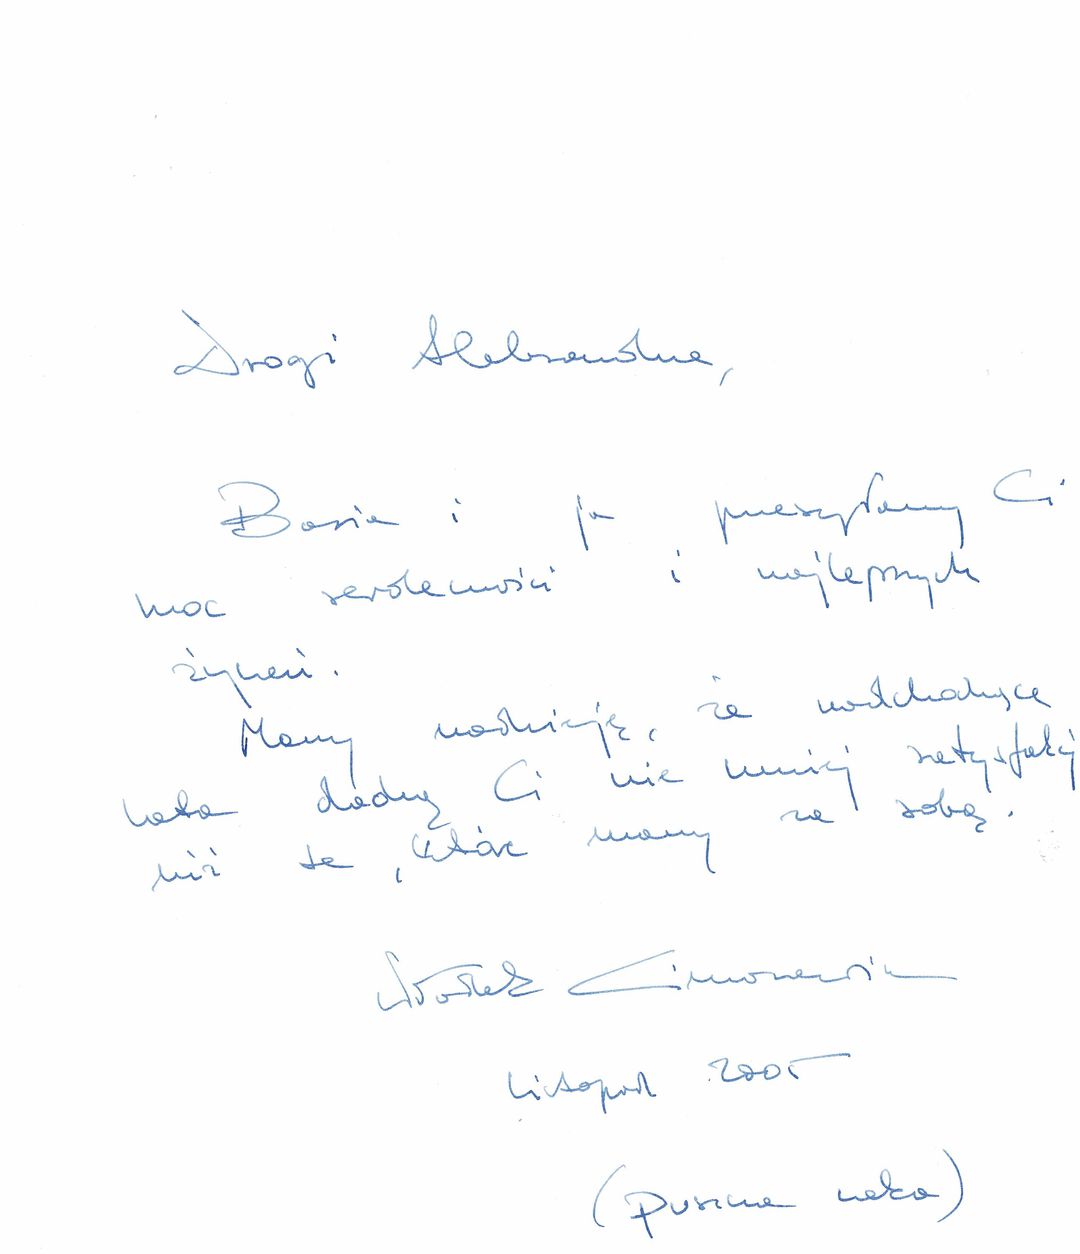 Drogi Aleksandrze,
Basia i ja przesyłamy Ci
moc serdeczności i najlepszych
życzeń.
Mamy nadzieję, że nadchodzące
lata dadzą Ci nie mniej satysfakcji
niż te, które mamy za sobą.
Włodek Cimoszewicz
Listopad 2005
(Puszcza czeka)